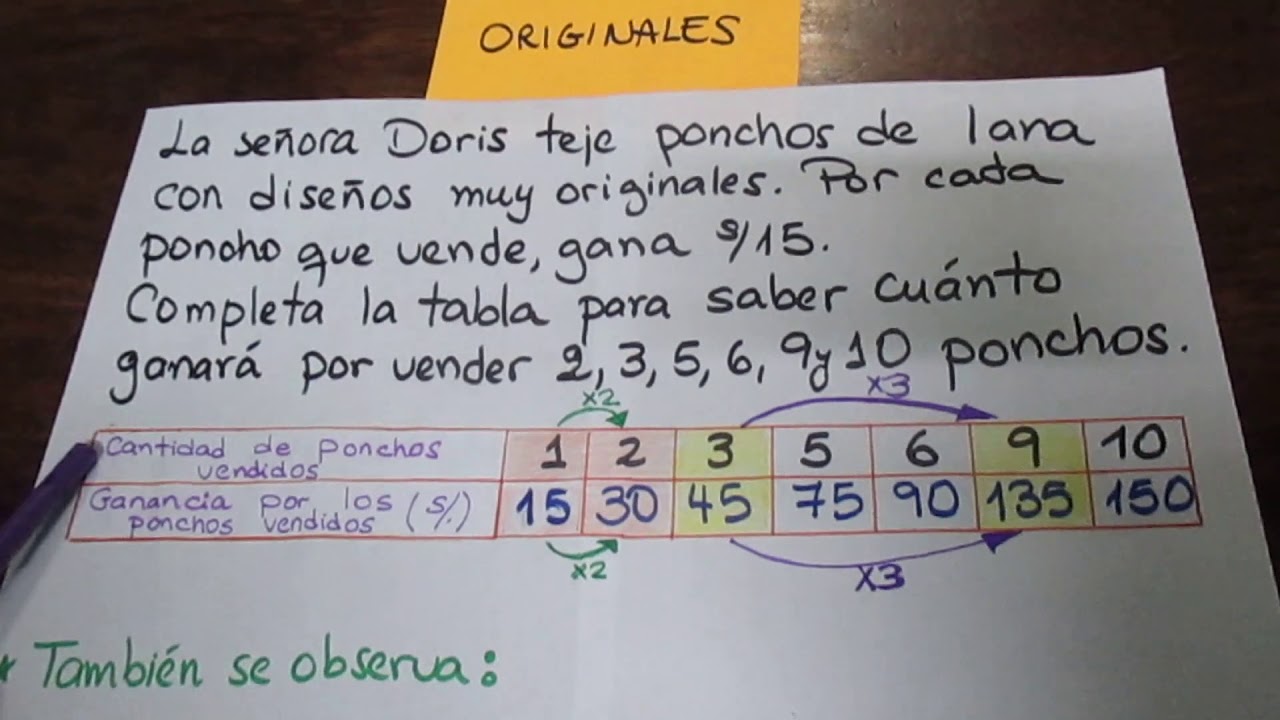 ORIGINALES
La señora Doris teje ponchos de lana
con diseños muy originales. Por cada
poncho que vende, gana s/15.
Completa la tabla para saber cuánto
ganará por vender 2, 3, 5, 6, 9 y 10 ponchos.
x2 x3
Cantidad de ponchos vendidos 1 2 3 5 6 9 10
Ganancia por los ponchos vendidos (s/.) 15 30 45 75 90 135 150
x2 x3
* También se observa: